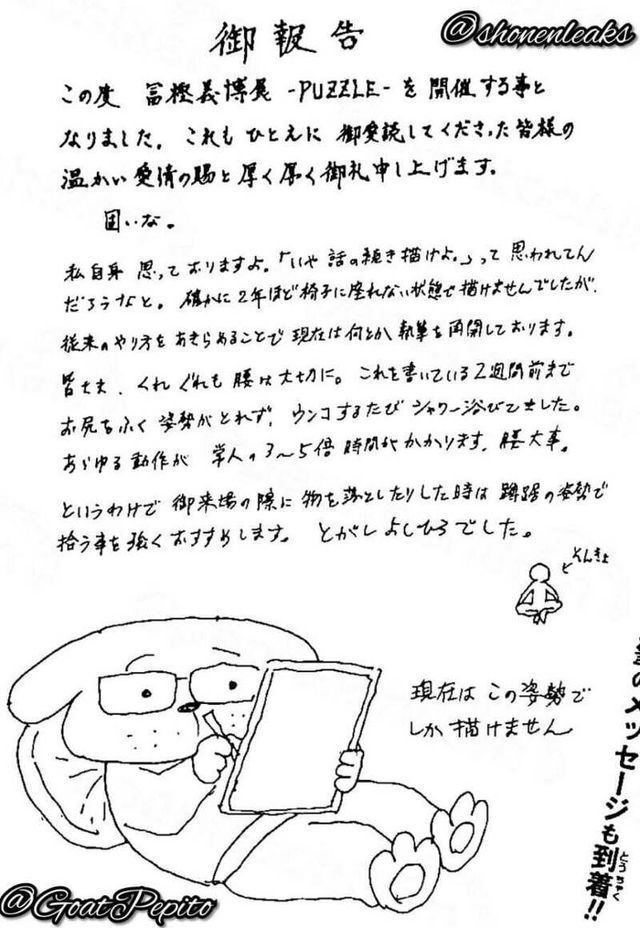 @shonenleaks
御報告
この度 冨樫義博展 -PUZZLE- を 開催する事と
なりました。これも ひとえに 御愛読してくださった皆様の
温かい愛情の賜と厚く厚く御礼申し上げます。
固いな。
私自身 思っておりますよ。「いや 話の続き描けよ。」って 思われてん
だろうなと。確かに2年ほど椅子に座れない状態で描けませんでしたが、
従来のやり方をあきらめることで現在は何とか執筆を再開しております。
皆さま、くれぐれも腰は大切に。これを書いている2週間前まで
お尻をふく姿勢がとれず、ウンコするたびシャワー浴びてました。
あらゆる動作が 常人の3〜5倍時間がかかります。腰大事。
というわけで御来場の際に物を落としたりした時は蹲踞の姿勢で
拾う事を強くおすすめします。とがしよしひろでした。
そんきょ
現在はこの姿勢で
しか描けません
のメッセージも到着!!
とうちゃく
@GoatPepito